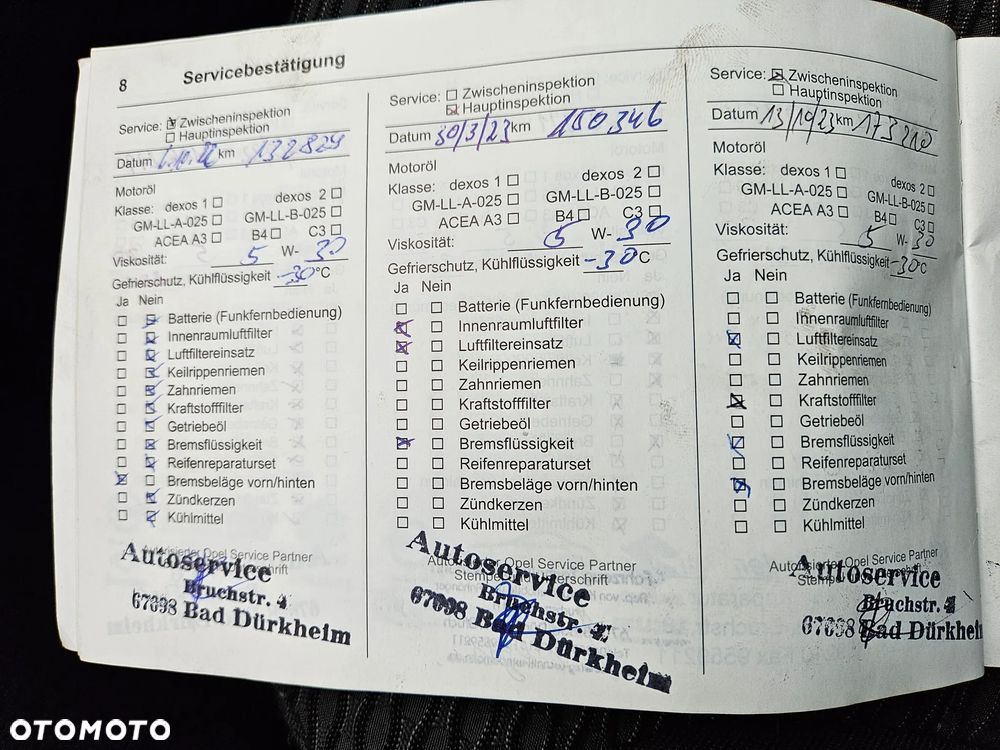 8 Servicebestätigung
Service: Zwischeninspektion
Hauptinspektion
Datum 6.10.22 km 132829
Motoröl
Klasse: dexos 1 dexos 2
GM-LL-A-025 GM-LL-B-025
ACEA A3 B4 C3
Viskosität: 5 W- 30
Gefrierschutz, Kühlflüssigkeit -30 °C
Ja Nein
Batterie (Funkfernbedienung)
Innenraumluftfilter
Luftfiltereinsatz
Keilrippenriemen
Zahnriemen
Kraftstofffilter
Getriebeöl
Bremsflüssigkeit
Reifenreparaturset
Bremsbeläge vorn/hinten
Zündkerzen
Kühlmittel
Autorisierter Opel Service Partner
Autoservice
Bruchstr. 4
67098 Bad Dürkheim
Service: Zwischeninspektion
Hauptinspektion
Datum 30/3/23 km 150346
Motoröl
Klasse: dexos 1 dexos 2
GM-LL-A-025 GM-LL-B-025
ACEA A3 B4 C3
Viskosität: 5 W- 30
Gefrierschutz, Kühlflüssigkeit -30 °C
Ja Nein
Batterie (Funkfernbedienung)
Innenraumluftfilter
Luftfiltereinsatz
Keilrippenriemen
Zahnriemen
Kraftstofffilter
Getriebeöl
Bremsflüssigkeit
Reifenreparaturset
Bremsbeläge vorn/hinten
Zündkerzen
Kühlmittel
Opel Service Partner
Autoservice
Bruchstr. 4
67098 Bad Dürkheim
Service: Zwischeninspektion
Hauptinspektion
Datum 13/10/23 km 173210
Motoröl
Klasse: dexos 1 dexos 2
GM-LL-A-025 GM-LL-B-025
ACEA A3 B4 C3
Viskosität: 5 W- 30
Gefrierschutz, Kühlflüssigkeit -30 °C
Ja Nein
Batterie (Funkfernbedienung)
Innenraumluftfilter
Luftfiltereinsatz
Keilrippenriemen
Zahnriemen
Kraftstofffilter
Getriebeöl
Bremsflüssigkeit
Reifenreparaturset
Bremsbeläge vorn/hinten
Zündkerzen
Kühlmittel
Autorisierter Opel Service Partner
Autoservice
Bruchstr. 4
67098 Bad Dürkheim
OTOMOTO